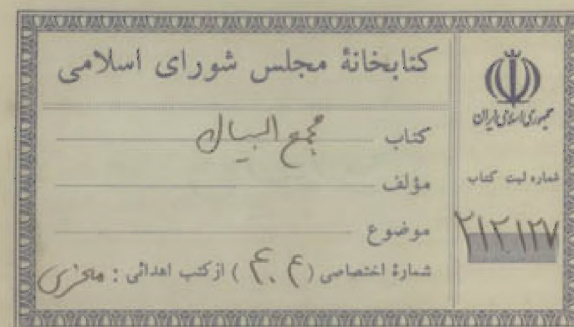 کتابخانهٔ مجلس شورای اسلامی
کتاب مجمع البیان
مؤلف
موضوع
شمارهٔ اختصاصی ( ۴۰۴ ) از کتب اهدائی :
جمهوری اسلامی ایران
شماره ثبت کتاب
۲۱۲۱۲۷